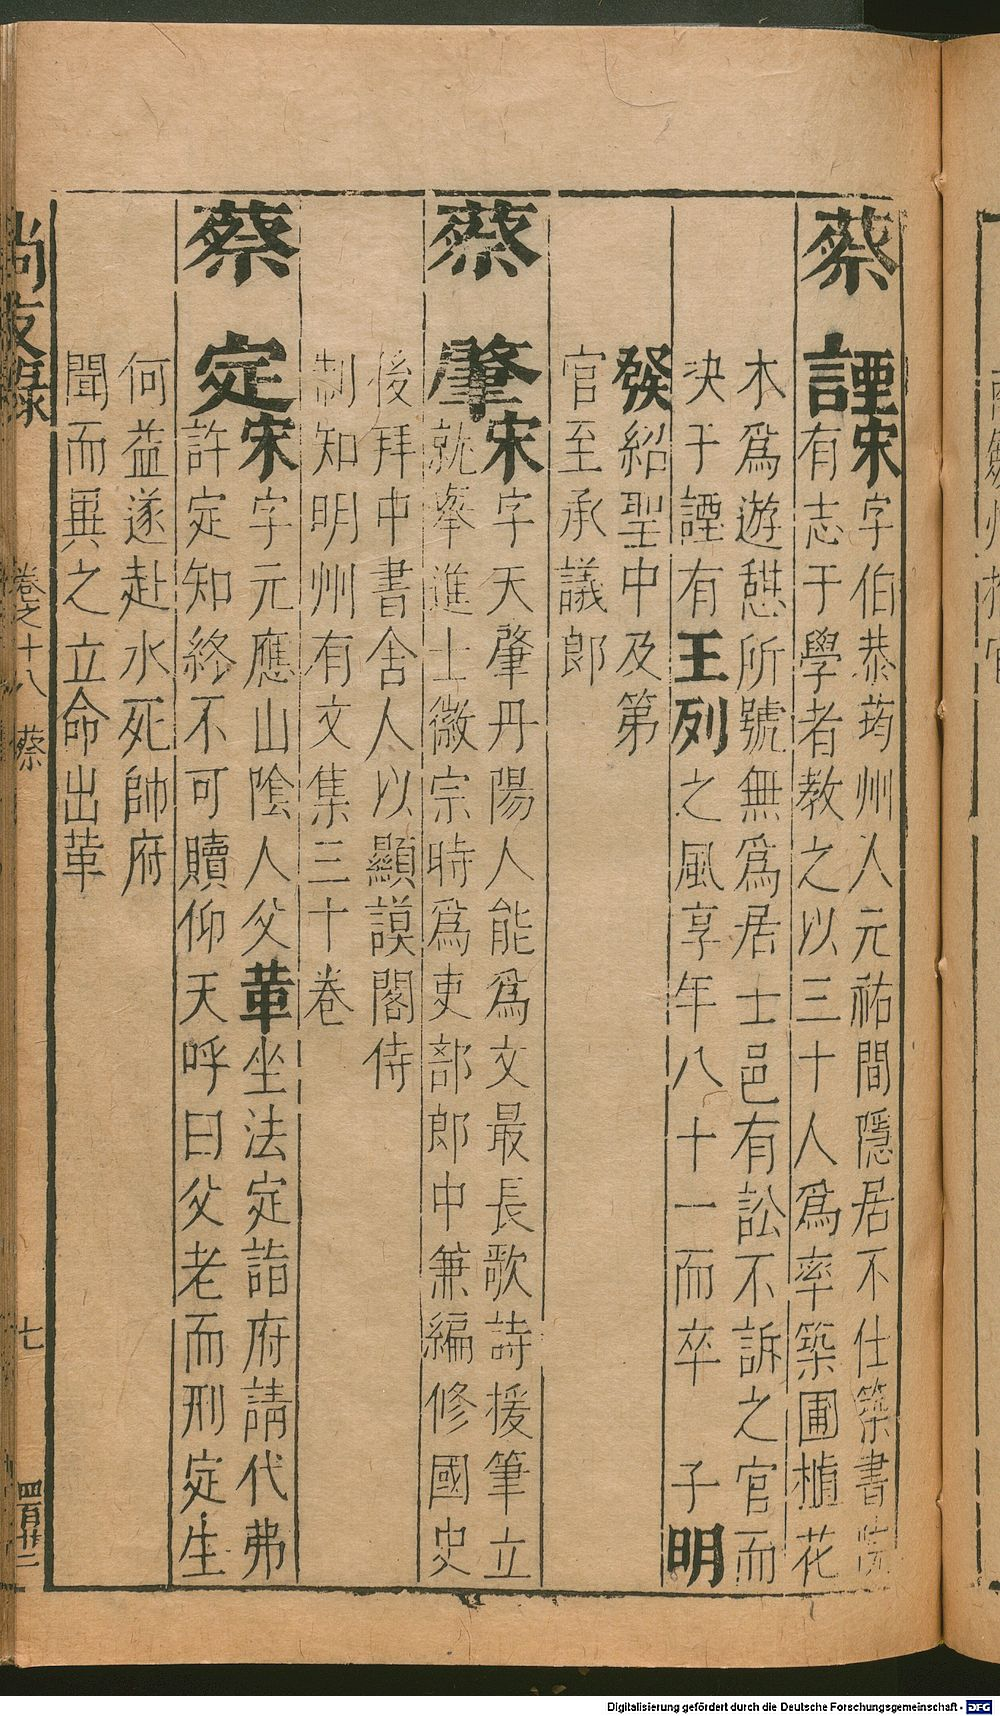 蔡譚宋字伯恭筠州人元祐間隱居不仕築書院
有志于學者教之以三十人爲率築圃植花
木爲遊憇所號無爲居士邑有訟不訴之官而
決于譚有王列之風享年八十一而卒 子明
發紹聖中及第
官至承議郎
蔡肇宋字天肇丹陽人能爲文最長歌詩援筆立
就舉進士徽宗時爲吏部郎中兼編修國史
後拜中書舍人以顯謨閣侍
制知明州有文集三十卷
蔡定宋字元應山陰人父革坐法定詣府請代弗
許定知終不可贖仰天呼曰父老而刑定生
何益遂赴水死帥府
聞而異之立命出革
尚友錄 卷之十八 蔡 七 四百廿二
Digitalisierung gefördert durch die Deutsche Forschungsgemeinschaft - DFG